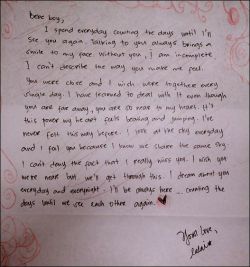 Dear boy,
I spend everyday counting the days until I'll
see you again. Talking to you always brings a
smile to my face without you, I am incomplete
I can't describe the way you make me feel.
You were close and I wish we were together every
single day. I have learned to deal with it even though
you are far away, you are so near to my heart. It's
this power my heart feels beating and jumping. I've
never felt this way before. I look at the sky everyday
and I feel you because I know we share the same sky
I can't deny the fact that I really miss you. I wish you
were near but we'll get through this. I dream about you
everyday and everynight. I'll be always here... counting the
days until we see each other again.
Your love,